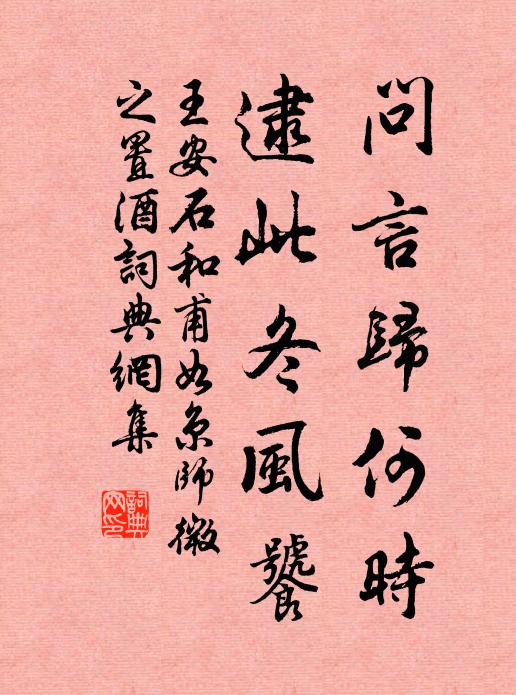 問言歸何時
逮此冬風饕
王安石和甫如京師微
之置酒詞典網集
詞典网印